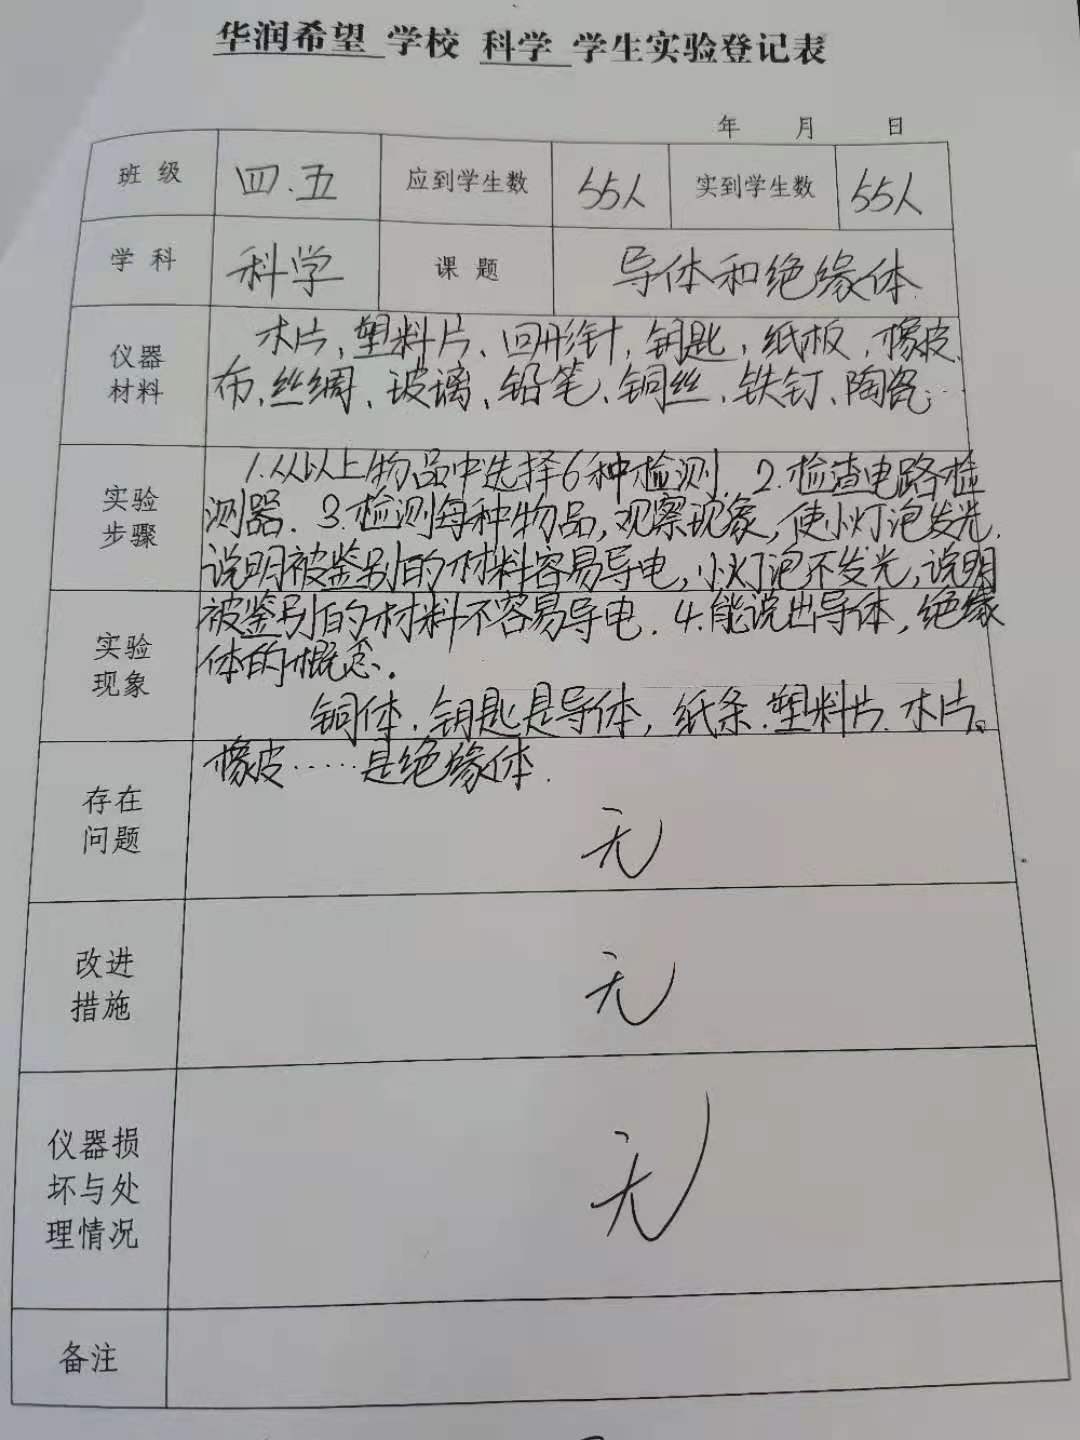 华润希望 学校 科学 学生实验登记表
年 月 日
班级 四.五 应到学生数 55人 实到学生数 55人
学科 科学 课题 导体和绝缘体
仪器材料
木片、塑料片、回形针、钥匙、纸板、橡皮、
布、丝绸、玻璃、铅笔、铜丝、铁钉、陶瓷…
实验步骤
1.从以上物品中选择6种检测. 2.检查电路检
测器. 3.检测每种物品,观察现象,使小灯泡发光,
说明被鉴别的材料容易导电,小灯泡不发光,说明
实验现象
被鉴别的材料不容易导电. 4.能说出导体,绝缘
体的概念.
铜体.钥匙是导体,纸条.塑料片.木片。
存在问题
橡皮……是绝缘体.
无
改进措施
无
仪器损坏与处理情况
无
备注